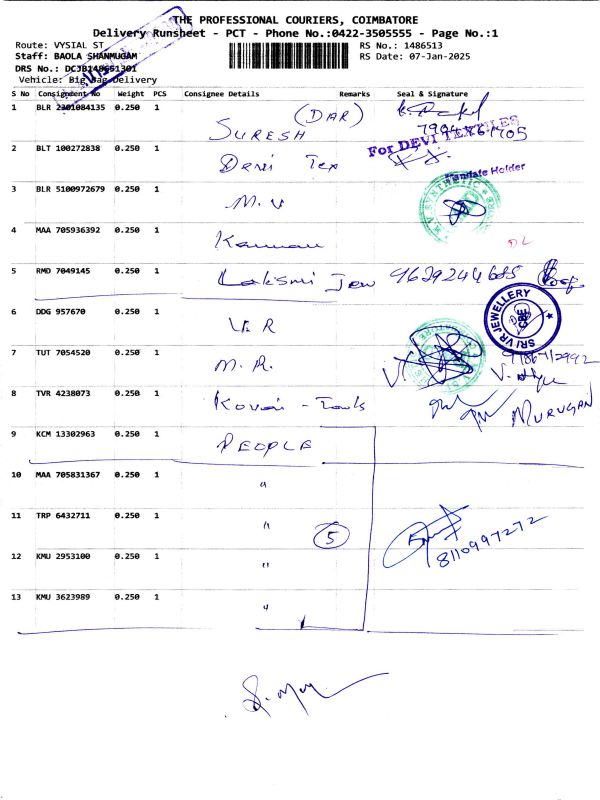 THE PROFESSIONAL COURIERS, COIMBATORE
Delivery Runsheet - PCT - Phone No.:0422-3505555 - Page No.:1
Route: VYSIAL ST
RS No.: 1486513
Staff: BAOLA SHANMUGAM
RS Date: 07-Jan-2025
DRS No.: DCJB148651301
Vehicle: Big Bag Delivery
S No Consignment No Weight PCS Consignee Details Remarks Seal & Signature
1 BLR 2301084135 0.250 1 SURESH (DAR)
2 BLT 100272838 0.250 1 Devi Tex
For DEVI TEXTILES
Mandate Holder
3 BLR 5100972679 0.250 1 M. V
4 MAA 705936392 0.250 1 Kannan
DL
5 RMD 7049145 0.250 1 Laksmi Jew 9629244685
6 DDG 957670 0.250 1 V. R
SRI VR JEWELLERY
CBE
7 TUT 7054520 0.250 1 M. R.
8 TVR 4238073 0.250 1 Kovai - Tools MURUGAN
9 KCM 13302963 0.250 1 PEOPLE
10 MAA 705831367 0.250 1 "
11 TRP 6432711 0.250 1 " 5
8110997272
12 KMU 2953100 0.250 1 "
13 KMU 3623989 0.250 1 "